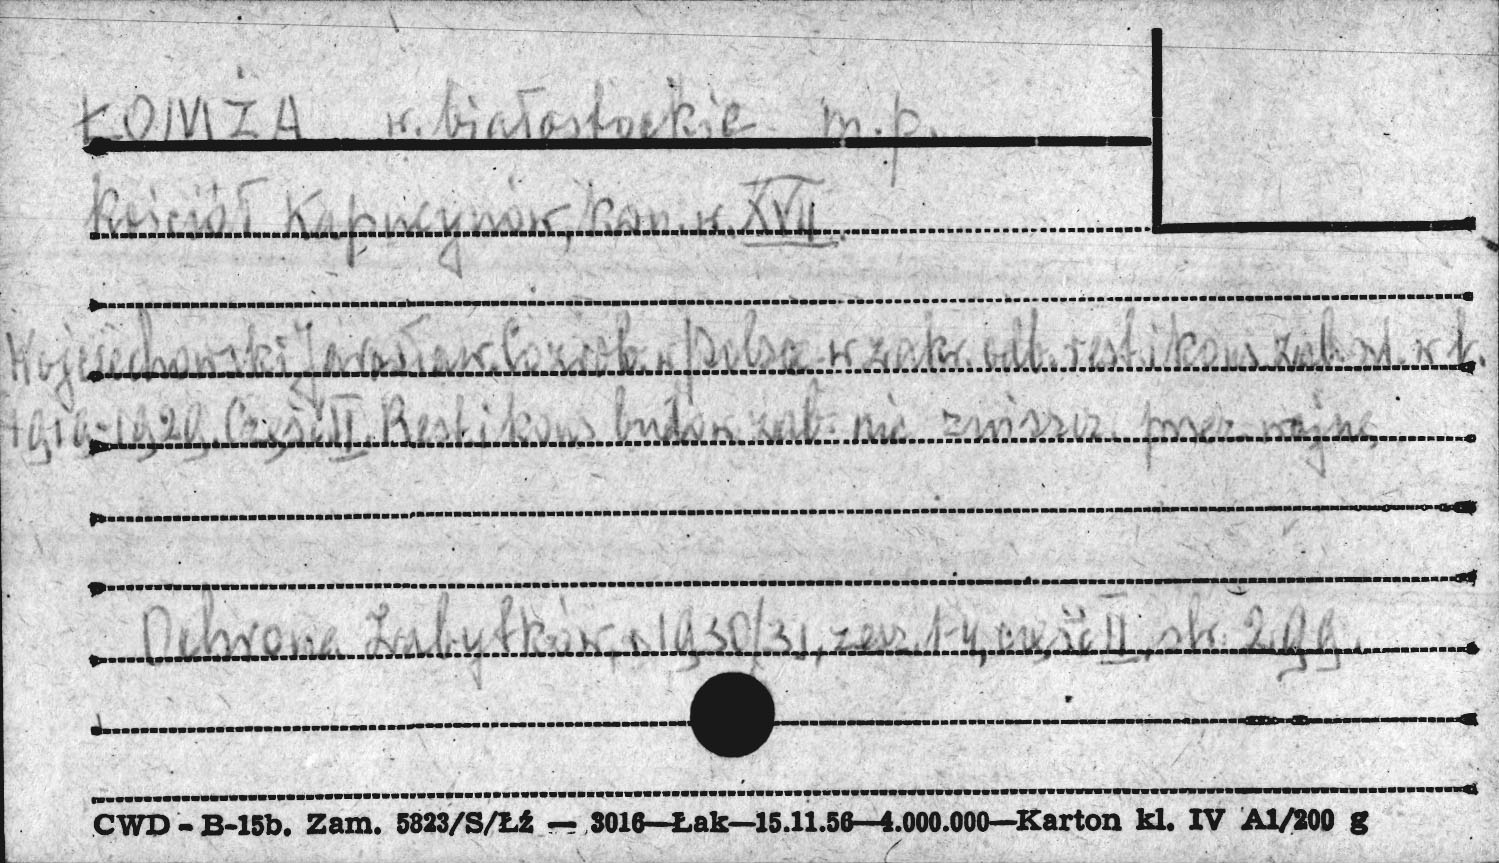 ŁOMŻA w. białostockie m. p.
Kościół Kapucynów, kon. w. XVII.
Wojciechowski Jarosław. Co zrob. w Polsce w zakr. odb. rest. i kons. zab. szt. w l.
1919-1929. Część II. Rest. i kons budow. zab. nie zniszcz. przez wojnę
Ochrona Zabytków, r. 1930/31, zesz. 1-4, część II, str. 299.
CWD - B-15b. Zam. 5823/S/Łź — 3016—Łak—15.11.56—4.000.000—Karton kl. IV A1/200 g